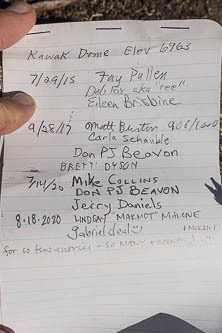 Kawak Dome Elev 6963
7/29/15 Fay Pullen
Deb Fox aka "ree"
Eileen Brisbine
9/28/17 Matt Burton 906/1020
Carla Schauble
Don PJ Beavon
BRETT DYSON
7/14/20 Mike Collins
DON PJ BEAVON
Jerry Daniels
8-18-2020 LINDSAY "MARMOT" MALONE
gabriel deal
for so few entries - so many